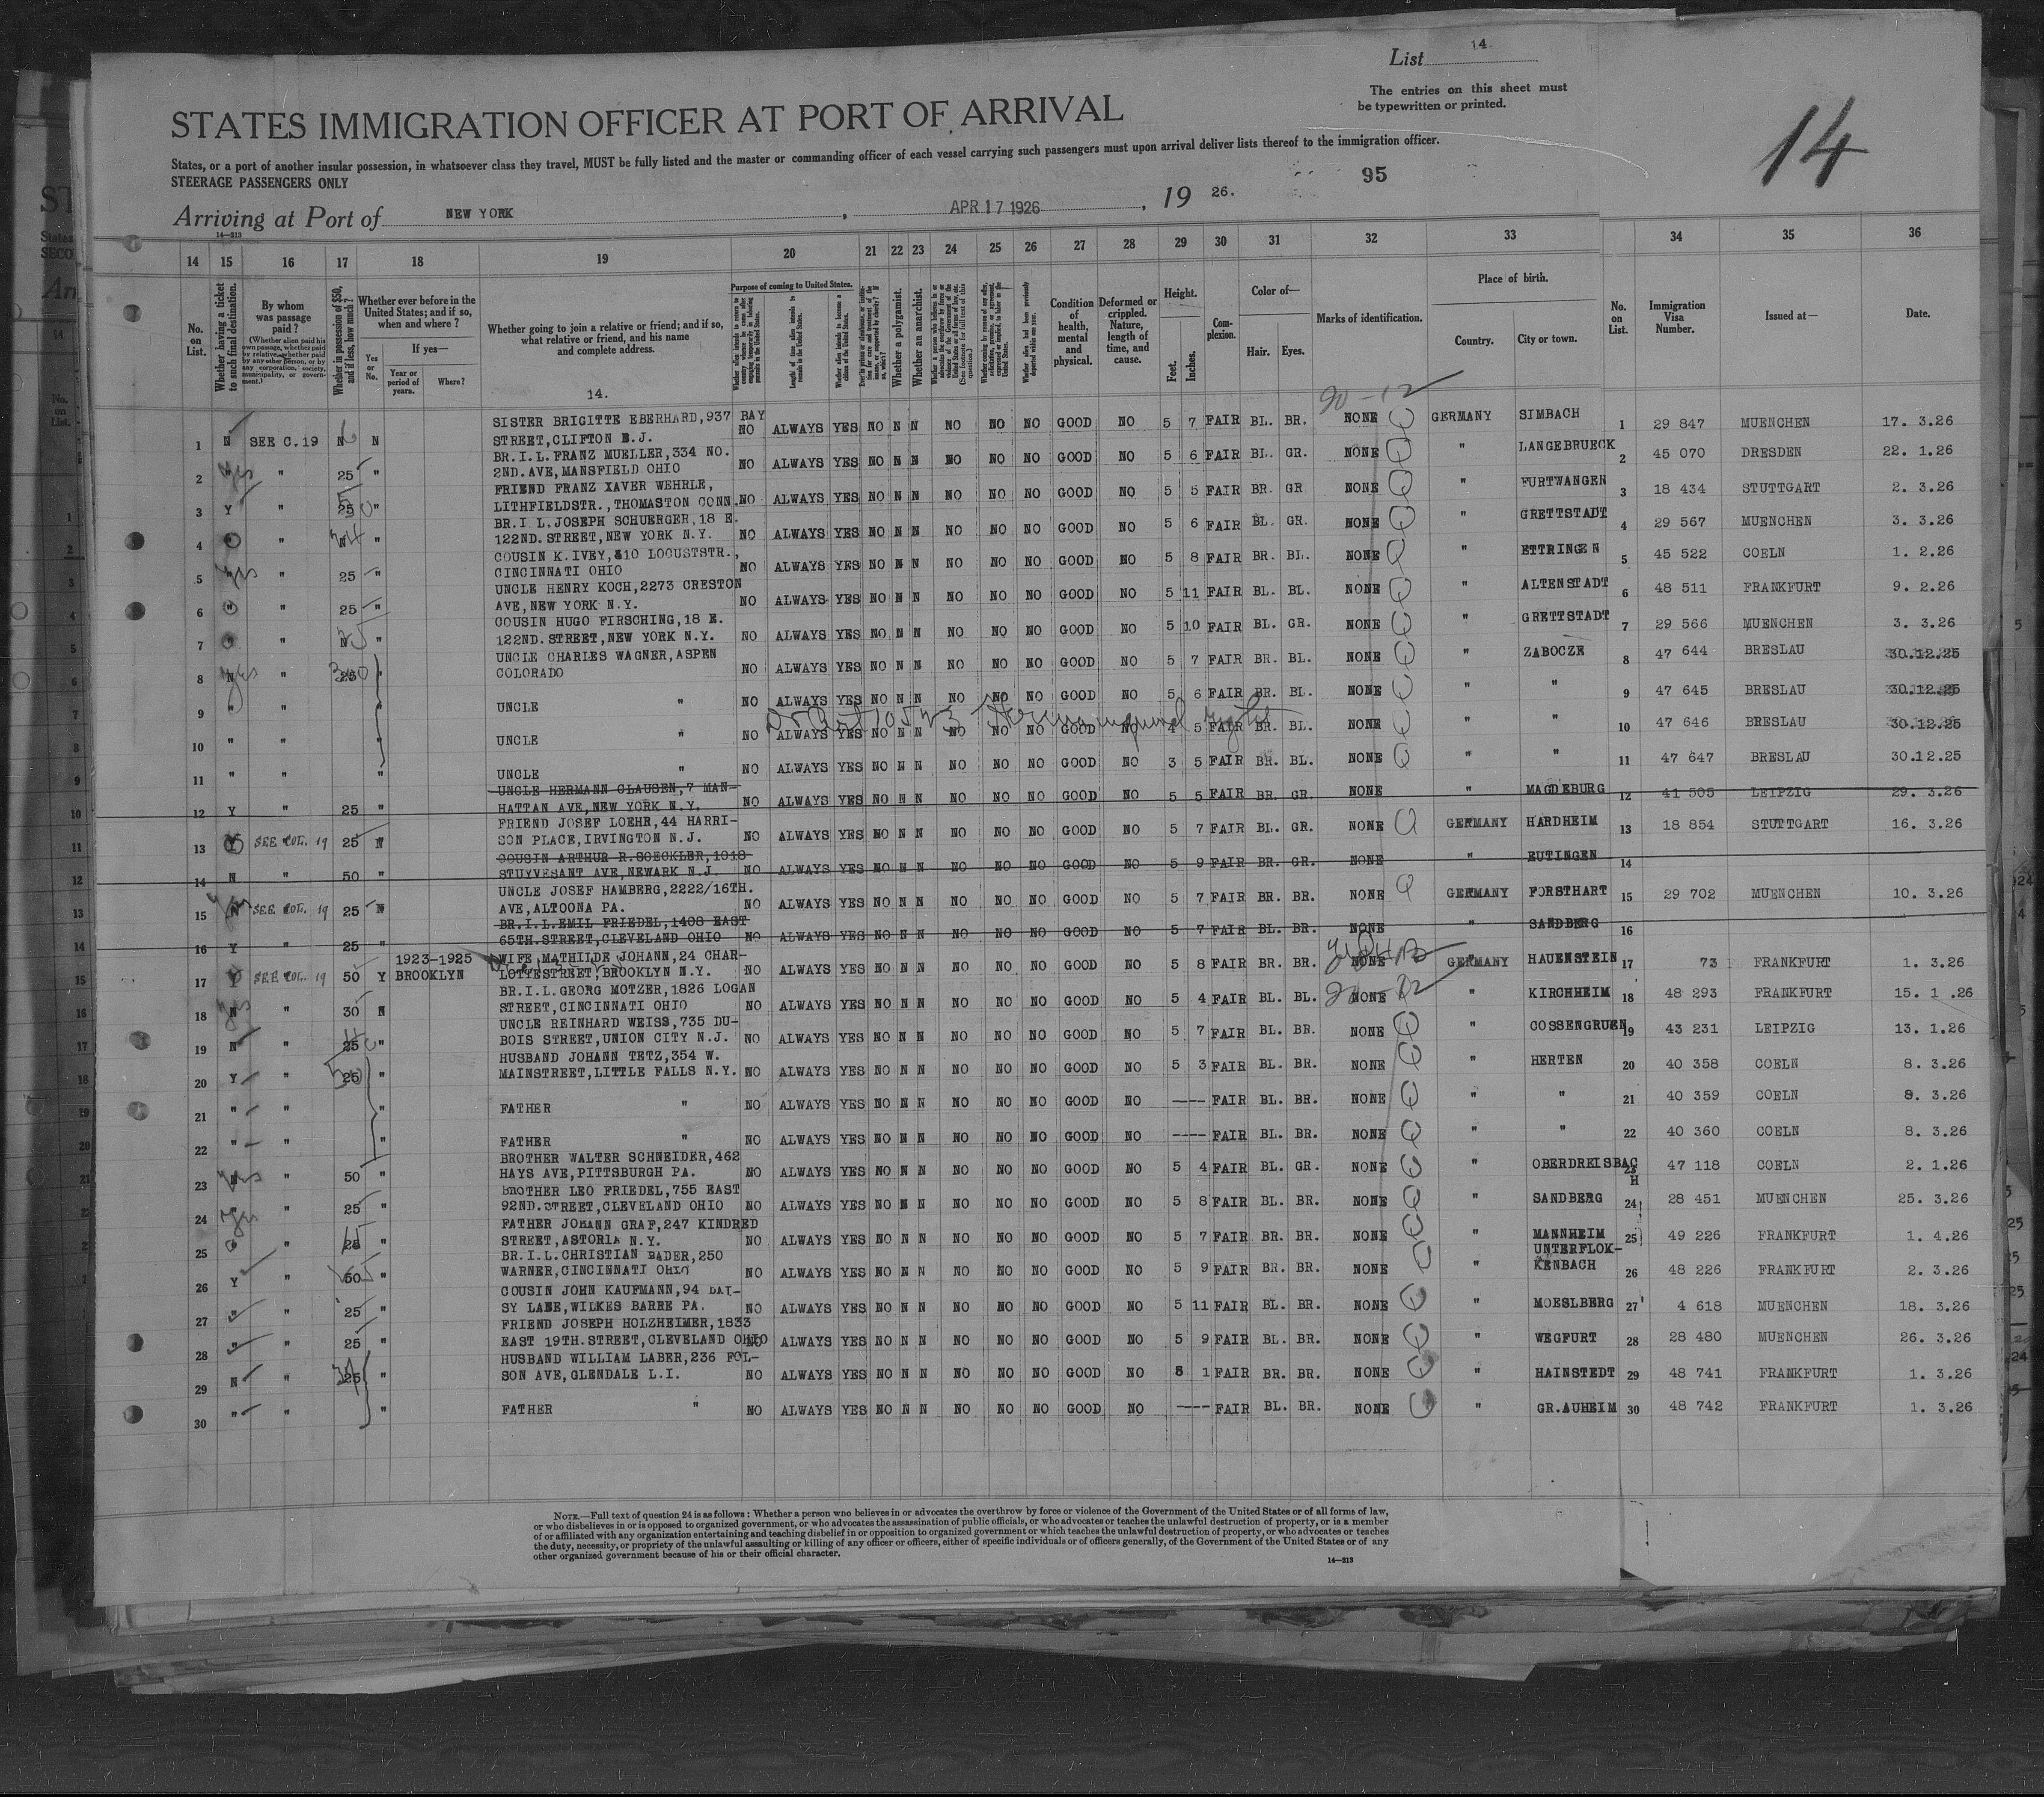 List 14
The entries on this sheet must
be typewritten or printed.
14
STATES IMMIGRATION OFFICER AT PORT OF ARRIVAL
States, or a port of another insular possession, in whatsoever class they travel, MUST be fully listed and the master or commanding officer of each vessel carrying such passengers must upon arrival deliver lists thereof to the immigration officer.
STEERAGE PASSENGERS ONLY
95
Arriving at Port of NEW YORK, APR 17 1926, 19 26.
14—213
14 15 16 17 18 19 20 21 22 23 24 25 26 27 28 29 30 31 32 33 34 35 36
No. on List.
Whether having a ticket to such final destination.
By whom was passage paid?
(Whether alien paid his own passage, whether paid by relative, whether paid by any other person, or by any corporation, society, municipality, or government.)
Whether in possession of $50, and if less, how much?
Whether ever before in the United States; and if so, when and where?
Yes or No.
If yes—
Year or period of years.
Where?
Whether going to join a relative or friend; and if so, what relative or friend, and his name and complete address.
14.
Purpose of coming to United States.
Length of time alien intends to remain in the United States.
Whether alien intends to become a citizen of the United States.
Whether a polygamist.
Whether an anarchist.
Condition of health, mental and physical.
Deformed or crippled. Nature, length of time, and cause.
Height.
Feet.
Inches.
Complexion.
Color of—
Hair.
Eyes.
Marks of identification.
Place of birth.
Country.
City or town.
No. on List.
Immigration Visa Number.
Issued at—
Date.
SISTER BRIGITTE EBERHARD,937 BAY
1 N SEE C.19 N N STREET,CLIFTON N.J. NO ALWAYS YES NO N N NO NO NO GOOD NO 5 7 FAIR BL. BR. NONE GERMANY SIMBACH 1 29 847 MUENCHEN 17. 3.26
BR.I.L.FRANZ MUELLER,334 NO.
2 " " 25 " 2ND.AVE,MANSFIELD OHIO NO ALWAYS YES NO N N NO NO NO GOOD NO 5 6 FAIR BL. GR. NONE " LANGEBRUECK 2 45 070 DRESDEN 22. 1.26
FRIEND FRANZ XAVER WEHRLE,
3 Y " 25 " LITHFIELDSTR.,THOMASTON CONN. NO ALWAYS YES NO N N NO NO NO GOOD NO 5 5 FAIR BR. GR NONE " FURTWANGEN 3 18 434 STUTTGART 2. 3.26
BR.I L.JOSEPH SCHUERGER,18 E.
4 " " 122ND.STREET,NEW YORK N.Y. NO ALWAYS YES NO N N NO NO NO GOOD NO 5 6 FAIR BL. GR. NONE " GRETTSTADT 4 29 567 MUENCHEN 3. 3.26
COUSIN K.IVEY,410 LOCUSTSTR.,
5 yes " 25 " CINCINNATI OHIO NO ALWAYS YES NO N N NO NO NO GOOD NO 5 8 FAIR BR. BL. NONE " ETTRINGEN 5 45 522 COELN 1. 2.26
UNCLE HENRY KOCH,2273 CRESTON
6 " " 25 " AVE,NEW YORK N.Y. NO ALWAYS YES NO N N NO NO NO GOOD NO 5 11 FAIR BL. BL. NONE " ALTENSTADT 6 48 511 FRANKFURT 9. 2.26
COUSIN HUGO FIRSCHING,18 E.
7 " " N " 122ND.STREET,NEW YORK N.Y. NO ALWAYS YES NO N N NO NO NO GOOD NO 5 10 FAIR BL. GR. NONE " GRETTSTADT 7 29 566 MUENCHEN 3. 3.26
UNCLE CHARLES WAGNER,ASPEN
8 N " 25 " COLORADO NO ALWAYS YES NO N N NO NO NO GOOD NO 5 7 FAIR BR. BL. NONE " ZABOCZE 8 47 644 BRESLAU 30.12.25
9 " " " UNCLE " NO ALWAYS YES NO N N NO NO NO GOOD NO 5 6 FAIR BR. BL. NONE " " 9 47 645 BRESLAU 30.12.25
10 " " " UNCLE " NO ALWAYS YES NO N N NO NO NO GOOD NO 4 5 FAIR BR. BL. NONE " " 10 47 646 BRESLAU 30.12.25
11 " " " UNCLE " NO ALWAYS YES NO N N NO NO NO GOOD NO 3 5 FAIR BR. BL. NONE " " 11 47 647 BRESLAU 30.12.25
UNCLE HERMANN CLAUSEN,7 MAN-
12 Y " 25 " HATTAN AVE,NEW YORK N.Y. NO ALWAYS YES NO N N NO NO NO GOOD NO 5 5 FAIR BR. GR. NONE " MAGDEBURG 12 41 505 LEIPZIG 29. 3.26
FRIEND JOSEF LOEHR,44 HARRI-
13 Y SEE COL. 19 25 N SON PLACE,IRVINGTON N.J. NO ALWAYS YES NO N N NO NO NO GOOD NO 5 7 FAIR BL. GR. NONE GERMANY HARDHEIM 13 18 854 STUTTGART 16. 3.26
COUSIN ARTHUR R.SOECKLER,1018
14 N " 50 " STUYVESANT AVE,NEWARK N.J. NO ALWAYS YES NO N N NO NO NO GOOD NO 5 9 FAIR BR. GR. NONE " EUTINGEN 14
UNCLE JOSEF HAMBERG,2222/16TH.
15 N SEE COL. 19 25 N AVE,ALTOONA PA. NO ALWAYS YES NO N N NO NO NO GOOD NO 5 7 FAIR BR. BR. NONE GERMANY FORSTHART 15 29 702 MUENCHEN 10. 3.26
BR.I.L.EMIL FRIEDEL,1408 EAST
16 Y " 25 " 65TH.STREET,CLEVELAND OHIO NO ALWAYS YES NO N N NO NO NO GOOD NO 5 7 FAIR BL. BR. NONE " SANDBERG 16
1923-1925 WIFE MATHILDE JOHANN,24 CHAR-
17 Y SEE COL. 19 50 Y BROOKLYN LOTTESTREET,BROOKLYN N.Y. NO ALWAYS YES NO N N NO NO NO GOOD NO 5 8 FAIR BR. BR. NONE GERMANY HAUENSTEIN 17 73 FRANKFURT 1. 3.26
BR.I.L.GEORG MOTZER,1826 LOGAN
18 N " 30 N STREET,CINCINNATI OHIO NO ALWAYS YES NO N N NO NO NO GOOD NO 5 4 FAIR BL. BL. NONE " KIRCHHEIM 18 48 293 FRANKFURT 15. 1 .26
UNCLE REINHARD WEISS,735 DU-
19 N " 25 " BOIS STREET,UNION CITY N.J. NO ALWAYS YES NO N N NO NO NO GOOD NO 5 7 FAIR BL. BR. NONE " COSSENGRUEN 19 43 231 LEIPZIG 13. 1.26
HUSBAND JOHANN TETZ,354 W.
20 Y " 25 " MAINSTREET,LITTLE FALLS N.Y. NO ALWAYS YES NO N N NO NO NO GOOD NO 5 3 FAIR BL. BR. NONE " HERTEN 20 40 358 COELN 8. 3.26
21 " " " FATHER " NO ALWAYS YES NO N N NO NO NO GOOD NO ---- FAIR BL. BR. NONE " " 21 40 359 COELN 8. 3.26
22 " " " FATHER " NO ALWAYS YES NO N N NO NO NO GOOD NO ---- FAIR BL. BR. NONE " " 22 40 360 COELN 8. 3.26
BROTHER WALTER SCHNEIDER,462
23 N " 50 " HAYS AVE,PITTSBURGH PA. NO ALWAYS YES NO N N NO NO NO GOOD NO 5 4 FAIR BL. GR. NONE " OBERDREISBACH 23 47 118 COELN 2. 1.26
BROTHER LEO FRIEDEL,755 EAST
24 " " 25 " 92ND.STREET,CLEVELAND OHIO NO ALWAYS YES NO N N NO NO NO GOOD NO 5 8 FAIR BL. BR. NONE " SANDBERG 24 28 451 MUENCHEN 25. 3.26
FATHER JOHANN GRAF,247 KINDRED
25 " " 25 " STREET,ASTORIA N.Y. NO ALWAYS YES NO N N NO NO NO GOOD NO 5 7 FAIR BR. BR. NONE " MANNHEIM 25 49 226 FRANKFURT 1. 4.26
BR.I.L.CHRISTIAN BADER,250 UNTERFLOK-
26 Y " 50 " WARNER,CINCINNATI OHIO NO ALWAYS YES NO N N NO NO NO GOOD NO 5 9 FAIR BR. BR. NONE " KENBACH 26 48 226 FRANKFURT 2. 3.26
COUSIN JOHN KAUFMANN,94 DAI-
27 " " 25 " SY LANE,WILKES BARRE PA. NO ALWAYS YES NO N N NO NO NO GOOD NO 5 11 FAIR BL. BR. NONE " MOESLBERG 27 4 618 MUENCHEN 18. 3.26
FRIEND JOSEPH HOLZHEIMER,1833
28 " " 25 " EAST 19TH.STREET,CLEVELAND OHIO NO ALWAYS YES NO N N NO NO NO GOOD NO 5 9 FAIR BL. BR. NONE " WEGFURT 28 28 480 MUENCHEN 26. 3.26
HUSBAND WILLIAM LABER,236 FOL-
29 N " 25 " SON AVE,GLENDALE L.I. NO ALWAYS YES NO N N NO NO NO GOOD NO 5 1 FAIR BR. BR. NONE " HAINSTEDT 29 48 741 FRANKFURT 1. 3.26
30 " " " FATHER " NO ALWAYS YES NO N N NO NO NO GOOD NO ---- FAIR BL. BR. NONE " GR.AUHEIM 30 48 742 FRANKFURT 1. 3.26
NOTE.—Full text of question 24 is as follows: Whether a person who believes in or advocates the overthrow by force or violence of the Government of the United States or of all forms of law,
or who disbelieves in or is opposed to organized government, or who advocates the assassination of public officials, or who advocates or teaches the unlawful destruction of property, or is a member
of or affiliated with any organization entertaining and teaching disbelief in or opposition to organized government or which teaches the unlawful destruction of property, or who advocates or teaches
the duty, necessity, or propriety of the unlawful assaulting or killing of any officer or officers, either of specific individuals or of officers generally, of the Government of the United States or of any
other organized government because of his or their official character.
14—213